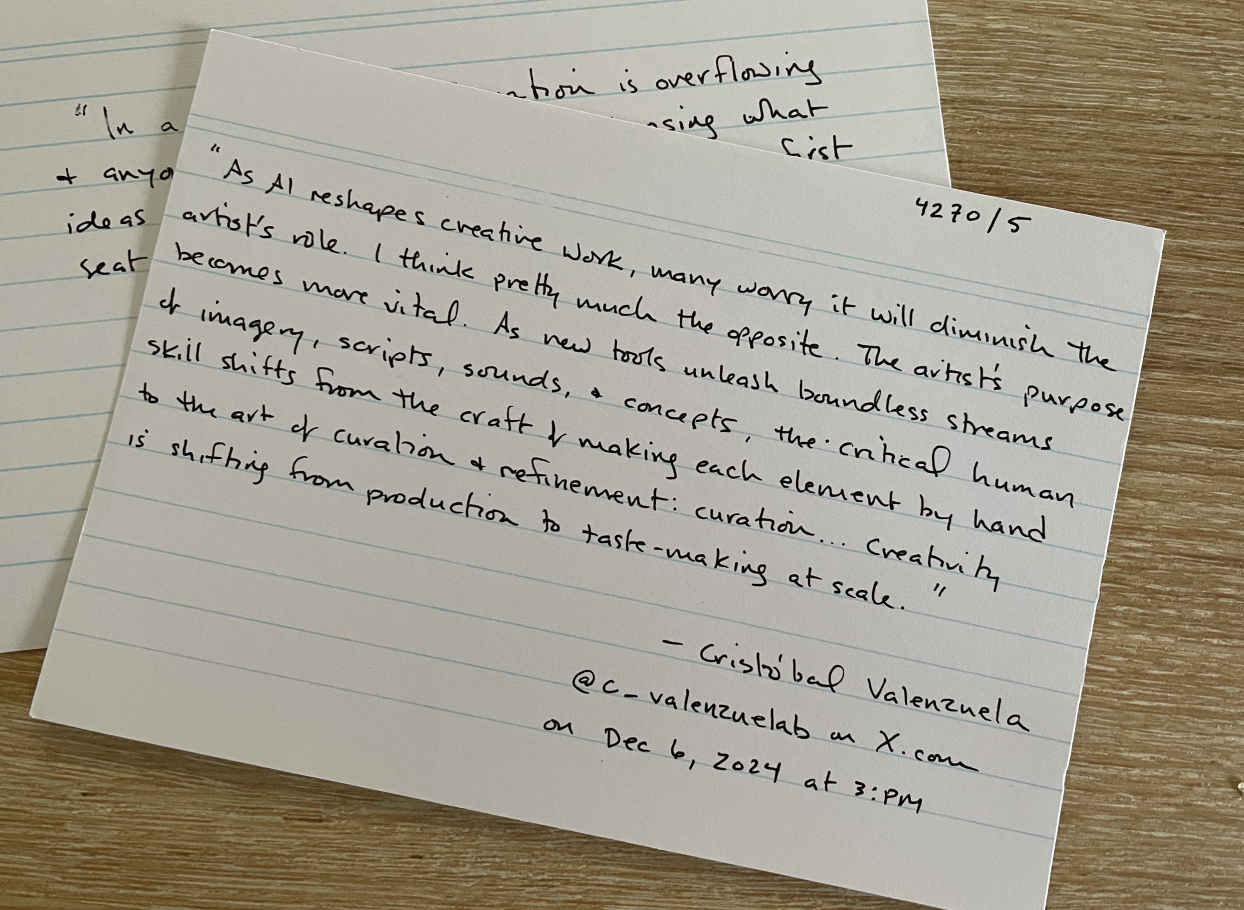 "In a
+ anyo
ideas
seat
ation is overflowing
sing what
4270/5
"As AI reshapes creative work, many worry it will diminish the
artist's role. I think pretty much the opposite. The artist's purpose
becomes more vital. As new tools unleash boundless streams
of imagery, scripts, sounds, + concepts, the critical human
skill shifts from the craft of making each element by hand
to the art of curation + refinement: curation... Creativity
is shifting from production to taste-making at scale."
— Cristóbal Valenzuela
@c_valenzuelab on X.com
on Dec 6, 2024 at 3:PM